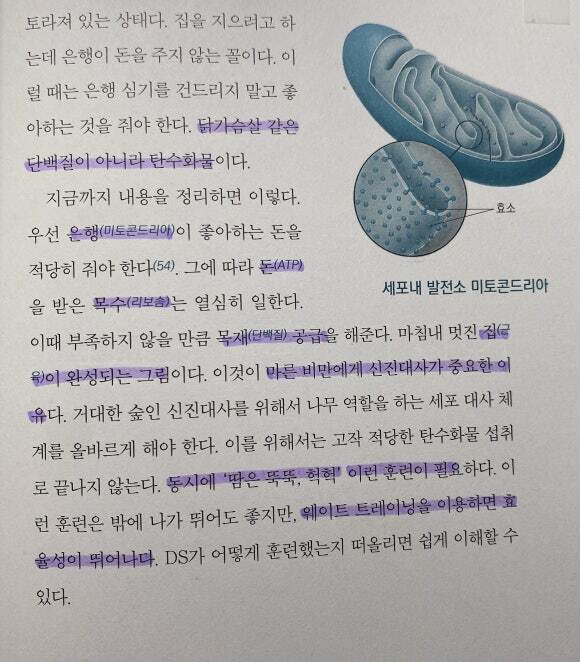 토라져 있는 상태다. 집을 지으려고 하
는데 은행이 돈을 주지 않는 꼴이다. 이
럴 때는 은행 심기를 건드리지 말고 좋
아하는 것을 줘야 한다. 닭가슴살 같은
단백질이 아니라 탄수화물이다.
지금까지 내용을 정리하면 이렇다.
우선 은행(미토콘드리아)이 좋아하는 돈을
적당히 줘야 한다(54). 그에 따라 돈(ATP)
을 받은 목수(리보솜)는 열심히 일한다.
효소
세포내 발전소 미토콘드리아
이때 부족하지 않을 만큼 목재(단백질) 공급을 해준다. 마침내 멋진 집(근
육)이 완성되는 그림이다. 이것이 마른 비만에게 신진대사가 중요한 이
유다. 거대한 숲인 신진대사를 위해서 나무 역할을 하는 세포 대사 체
계를 올바르게 해야 한다. 이를 위해서는 고작 적당한 탄수화물 섭취
로 끝나지 않는다. 동시에 ‘땀은 뚝뚝, 헉헉’ 이런 훈련이 필요하다. 이
런 훈련은 밖에 나가 뛰어도 좋지만, 웨이트 트레이닝을 이용하면 효
율성이 뛰어나다. DS가 어떻게 훈련했는지 떠올리면 쉽게 이해할 수
있다.